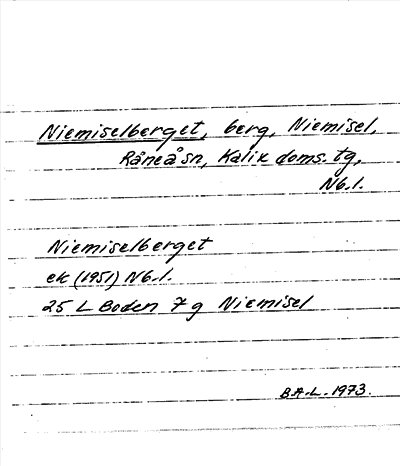 Niemiselberget, berg, Niemisel,
Råneå sn, Kalix doms. tg,
Nb.l.
Niemiselberget
ek (1951) Nb.l.
25 L Boden 7 g Niemisel
B.A.L. 1973.